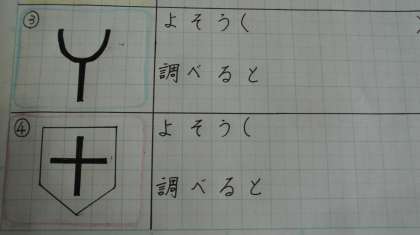 ③ よそう(
調べると
④ よそう(
調べると